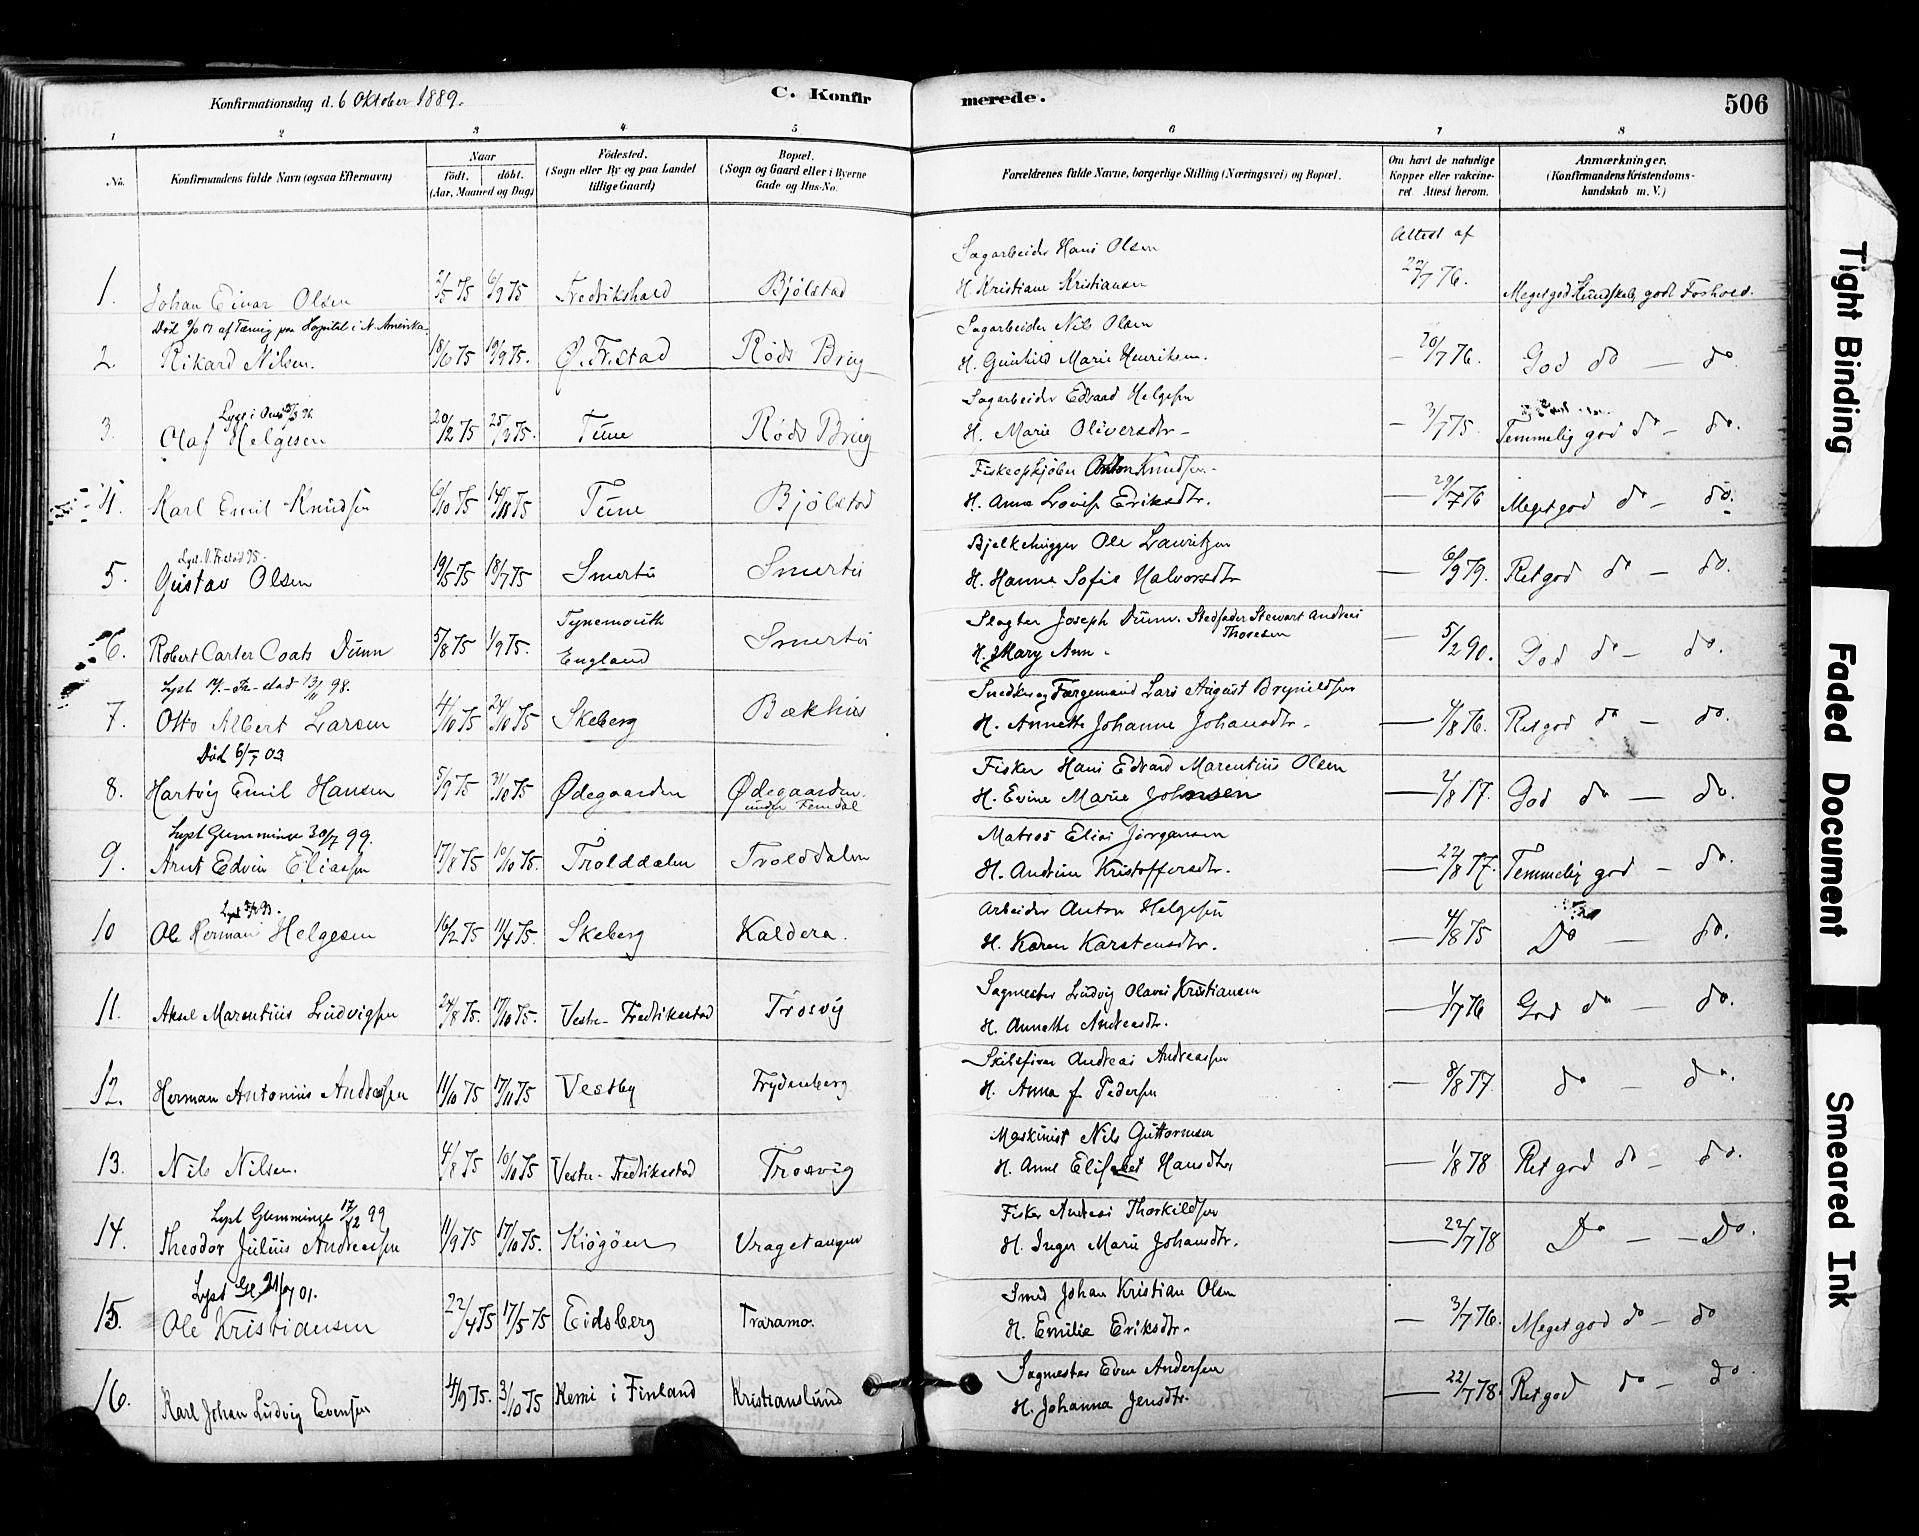 Konfirmationsdag d. 6 Oktober 1889.
C. Konfirmerede.
506
1 2 3 4 5 6 7 8
No.
Konfirmandens fulde Navn (ogsaa Efternavn)
Naar
födt. döbt.
(Aar, Maaned og Dag)
Födested.
(Sogn eller By og paa Landet
tillige Gaard)
Bopæl.
(Sogn og Gaard eller i Byerne
Gade og Hus-No.
Forældrenes fulde Navne, borgerlige Stilling (Næringsvei) og Bopæl.
Om havt de naturlige
Kopper eller vakcineret
Attest herom.
Anmærkninger.
(Konfirmandens Kristendomskundskab
m. V.)
Attest af
Sagarbeider Hans Olsen
1. Johan Einar Olsen 2/5 75 6/9 75 Fredrikshald Bjölstad H. Kristiane Kristiansen 22/7 76. Meget god Kundskab, godt Forhold.
Död af Tæring paa Hospital i N. Amerika
Sagarbeider Nils Olsen
2. Rikard Nilsen. 18/6 75 19/9 75. Ø. Fr.stad Röds Brug H. Gunhild Marie Henriksen. — 20/7 76. God do — do
Sagarbeider Edvard Helgesen
3. Olaf Helgesen 20/2 75 25/3 75. Tune Röds Brug H. Marie Oliversdtr — 3/7 75. Temmelig god do — do.
Fiskeopkjöber Anton Knudsen
4. Karl Emil Knudsen 6/10 75 14/11 75 Tune Bjölstad H. Anne Lovise Eriksdtr. — 29/7 76 Meget god do — do.
Lyst. V. Fr.stad 95.
Bjelkehugger Ole Lauritzen
5. Gustav Olsen 19/5 75 18/7 75 Smertu Smertu H. Hanne Sofie Halvorsdtr — 6/9 79. Ret god do — do.
Tynemouth
Slagter Joseph Dunn. Stedfader Stewart Andreas
Thoresen
6. Robert Carter Coats Dunn 5/8 75 1/9 75. England Smertu H. Mary Ann — 5/2 90. God do — do.
Lyst V.-Fr-stad 13/11 98.
Snedker og Færgemand Lars August Brynildsen
7. Otto Albert Larsen 4/10 75 24/10 75 Skeberg Bækhus H. Annette Johanne Johansdtr. — 4/8 76. Ret god do — do.
Död 6/5 03
Fisker Hans Edvard Marentius Olsen
8. Hartvig Emil Hansen 5/9 75 31/10 75 Ødegaarden Ødegaarden. H. Evine Marie Johnsen — 2/8 77. God do — do.
under Femdal
Lyst Glemminge 30/7 99.
Matros Elias Jörgensen
9. Arnt Edvin Eliassen 17/8 75 10/10 75. Trolddalen Trolddalen H. Andrine Kristoffersdtr. — 22/8 77. Temmelig god — do.
Arbeider Anton Helgesen
10 Ole Herman Helgesen 16/2 75 11/4 75. Skeberg Kaldera. H. Karen Karstensdtr. — 4/8 75 Do — do.
Sagmester Ludvig Olaves Kristiansen
11. Aksel Marentius Ludvigsen 24/8 75. 17/10 75. Vestre Fredriksstad Trosvig H. Annette Andreasdtr. — 1/7 76 God do — do.
Skibsförer Andreas Andreassen
12. Herman Antonius Andreassen 11/10 75 17/11 75 Vestby Frydenberg H. Anna f Pedersen — 8/8 77. do — do.
Maskinist Nils Guttormsen
13. Nils Nilsen. 4/8 75 10/10 75 Vestre-Fredriksstad Trosvig H. Anne Elisabet Hansdtr, — 1/8 78 Ret god do — do.
Lyst Glemminge 17/12 99
Fisker Andreas Thorkildsen
14. Theodor Julius Andreassen 11/9 75 17/10 75. Kiögöen Vragetangen H. Inger Marie Johansdtr. — 22/7 78 Do — Do.
Lyst Gl. 21/7 01.
Smed Johan Kristian Olsen
15. Ole Kristiansen 22/4 75 17/5 75 Eidsberg Traramo. H. Emilie Eriksdtr. — 3/7 76. Meget god do — do
Sagmester Even Andersen
16. Karl Johan Ludvig Evensen 4/9 75. 3/10 75 Kemi i Finland Kristianslund H. Johanna Jensdtr. — 22/7 78. Ret god do — do.
Tight Binding
Faded Document
Smeared Ink